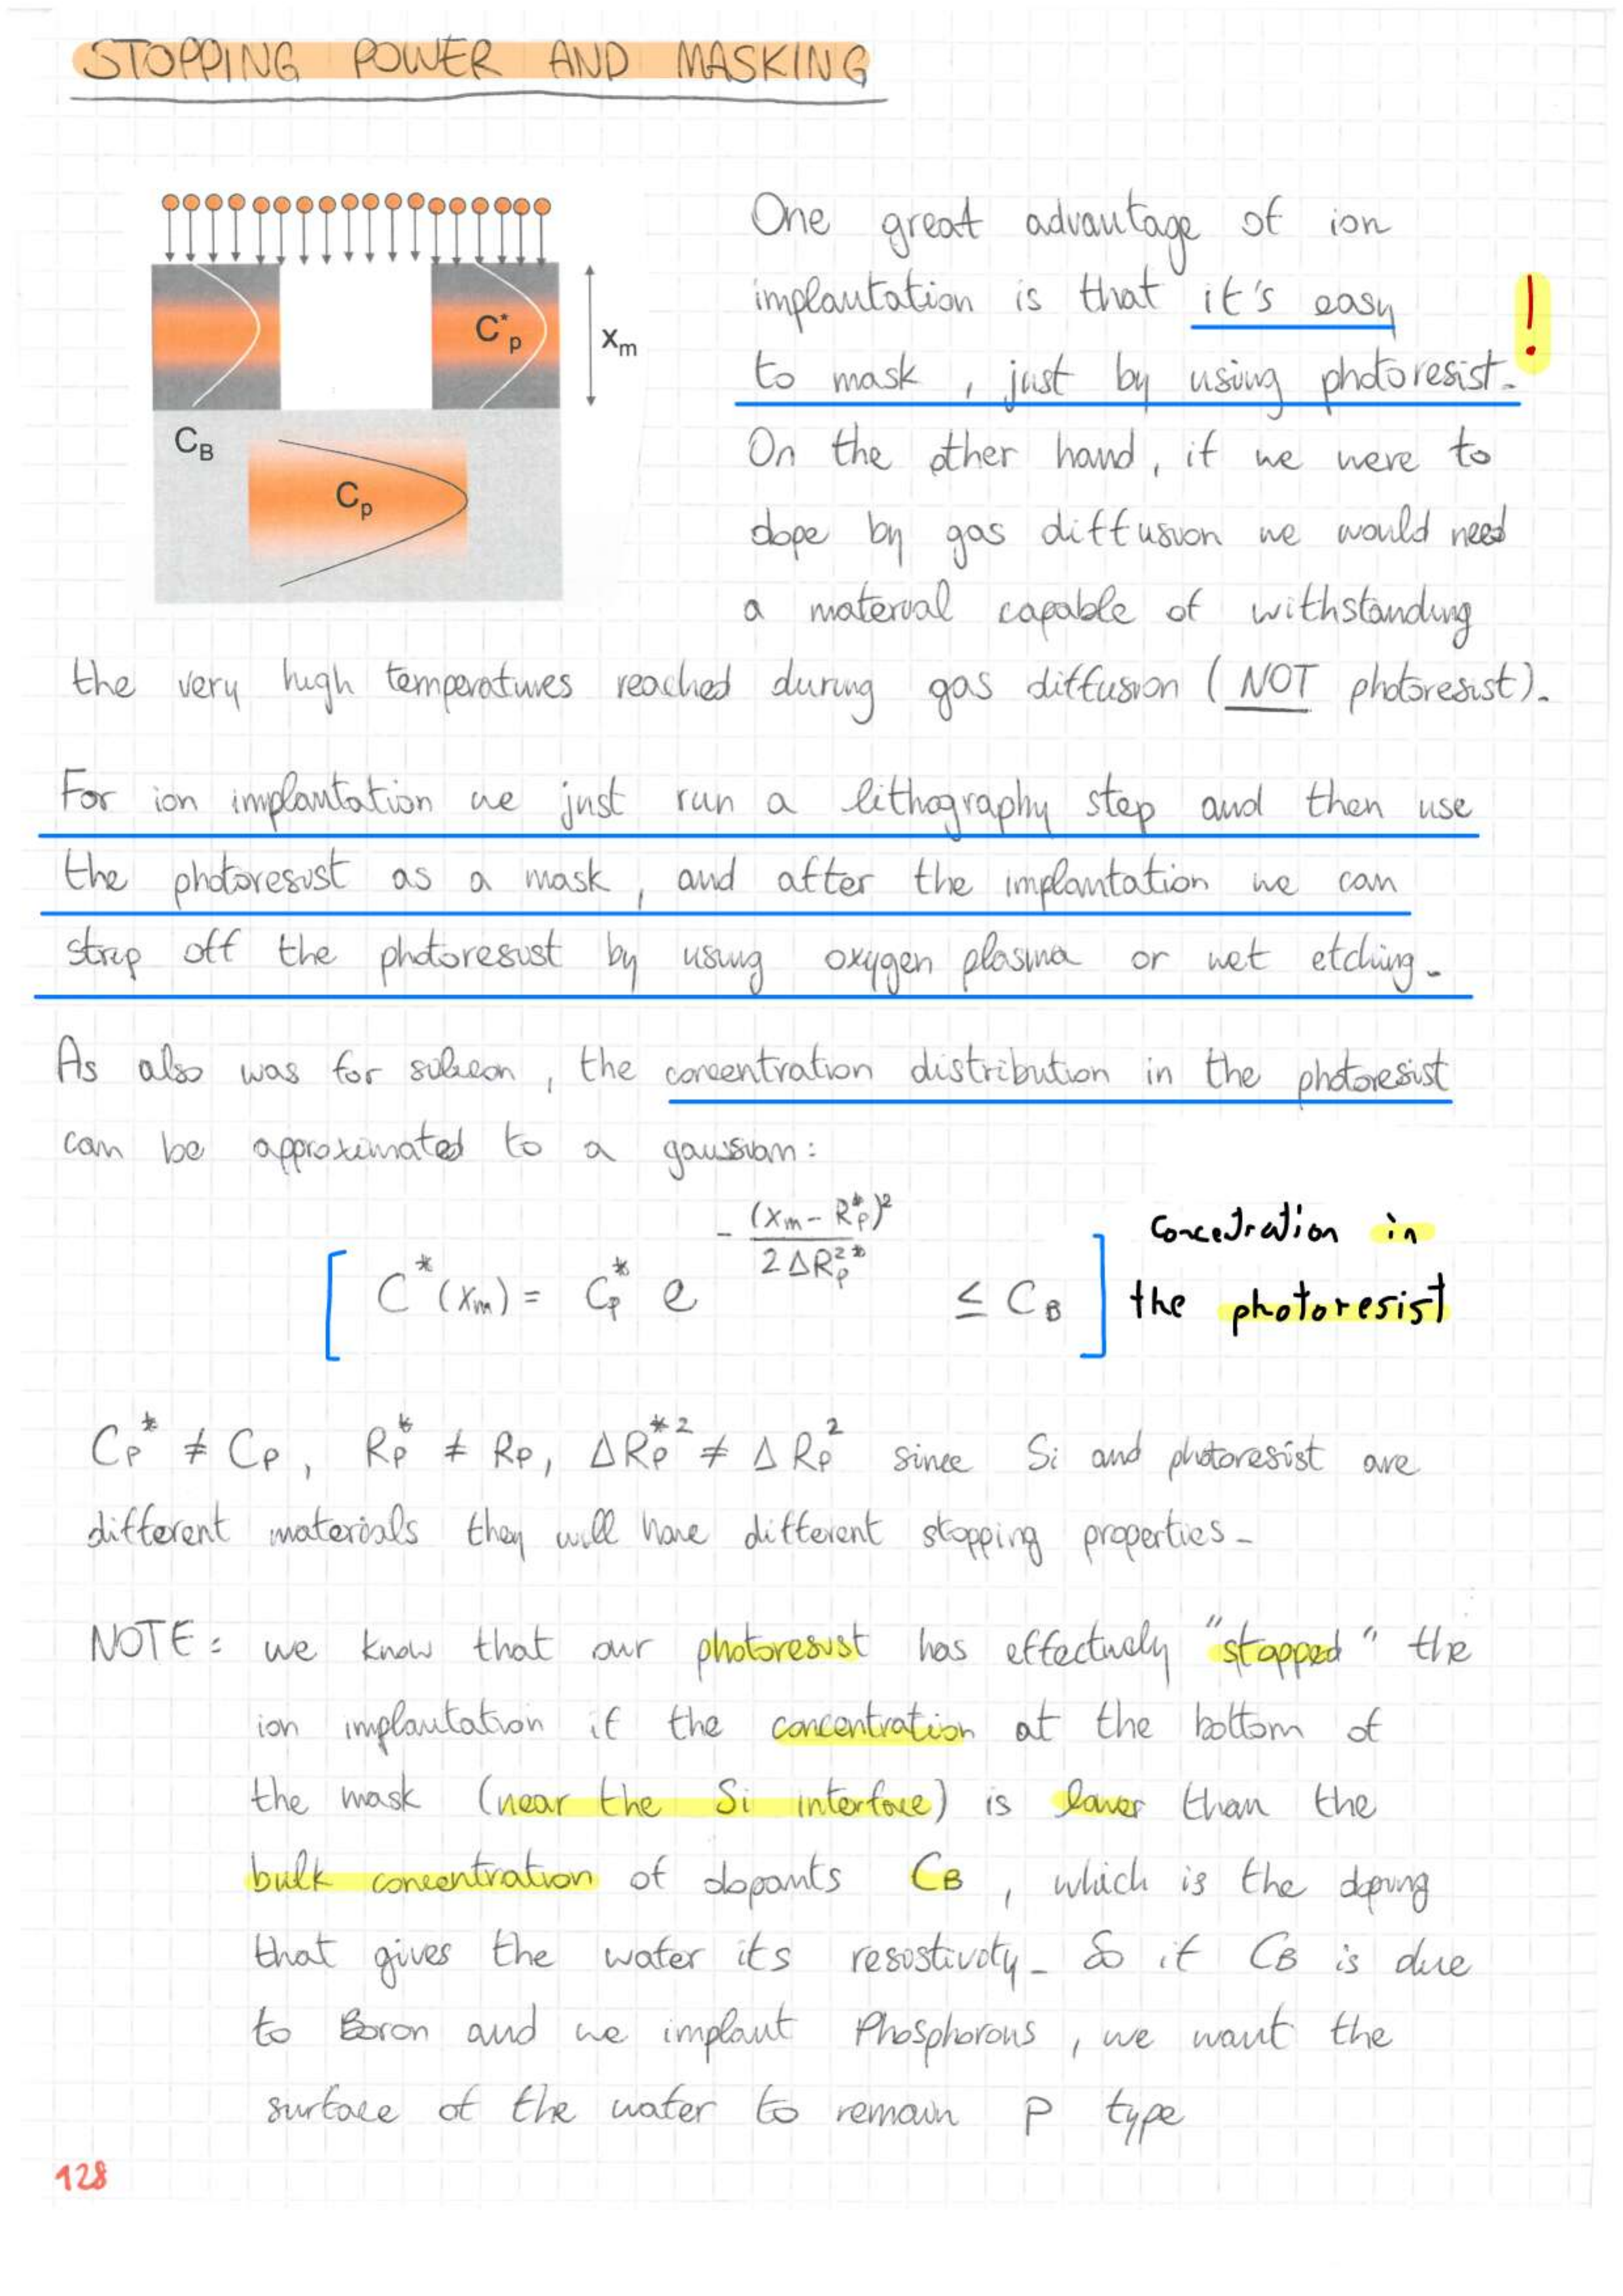 STOPPING POWER AND MASKING
C*p
xm
CB
Cp
One great advantage of ion
implantation is that it's easy !
to mask, just by using photoresist.
On the other hand, if we were to
dope by gas diffusion we would need
a material capable of withstanding
the very high temperatures reached during gas diffusion (NOT photoresist).
For ion implantation we just run a lithography step and then use
the photoresist as a mask, and after the implantation we can
strip off the photoresist by using oxygen plasma or wet etching.
As also was for silicon, the concentration distribution in the photoresist
can be approximated to a gaussian:
[ C*(xm) = Cp* e^(-(xm - Rp*)²/(2ΔRp²*)) ≤ CB ]
Concetration in
the photoresist
Cp* ≠ Cp, Rp* ≠ Rp, ΔRp*² ≠ ΔRp² since Si and photoresist are
different materials they will have different stopping properties.
NOTE: we know that our photoresist has effectively "stopped" the
ion implantation if the concentration at the bottom of
the mask (near the Si interface) is lower than the
bulk concentration of dopants CB, which is the doping
that gives the wafer its resistivity. So if CB is due
to Boron and we implant Phosphorous, we want the
surface of the wafer to remain P type
128